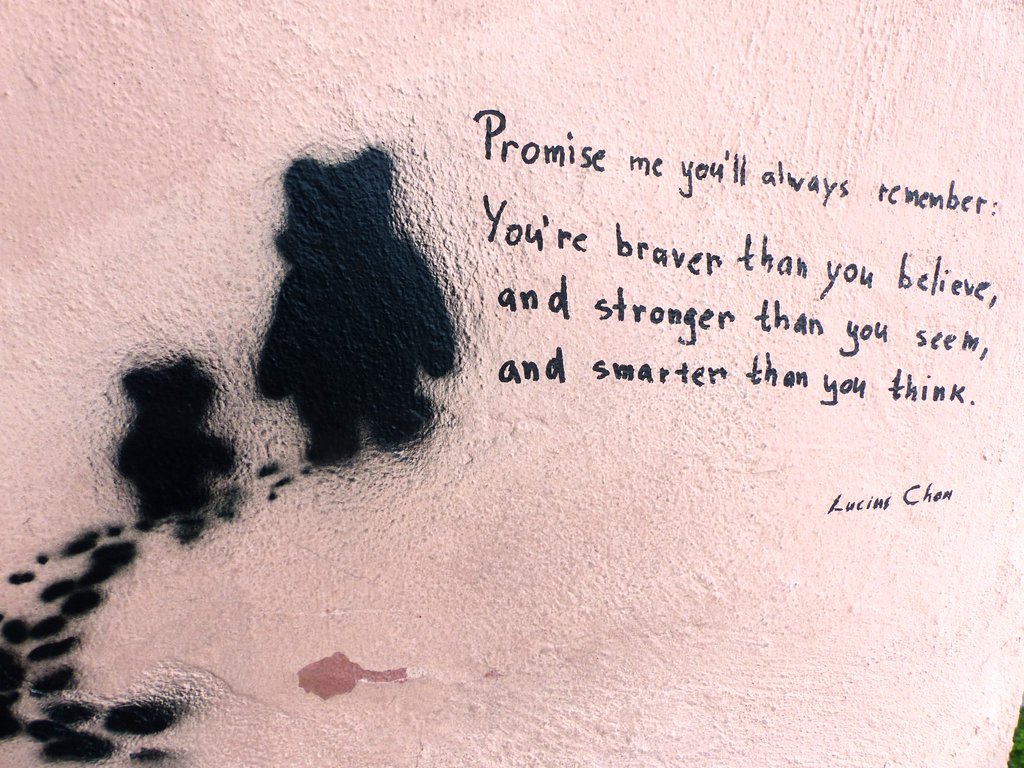 Promise me you'll always remember:
You're braver than you believe,
and stronger than you seem,
and smarter than you think.
Lucius Chan